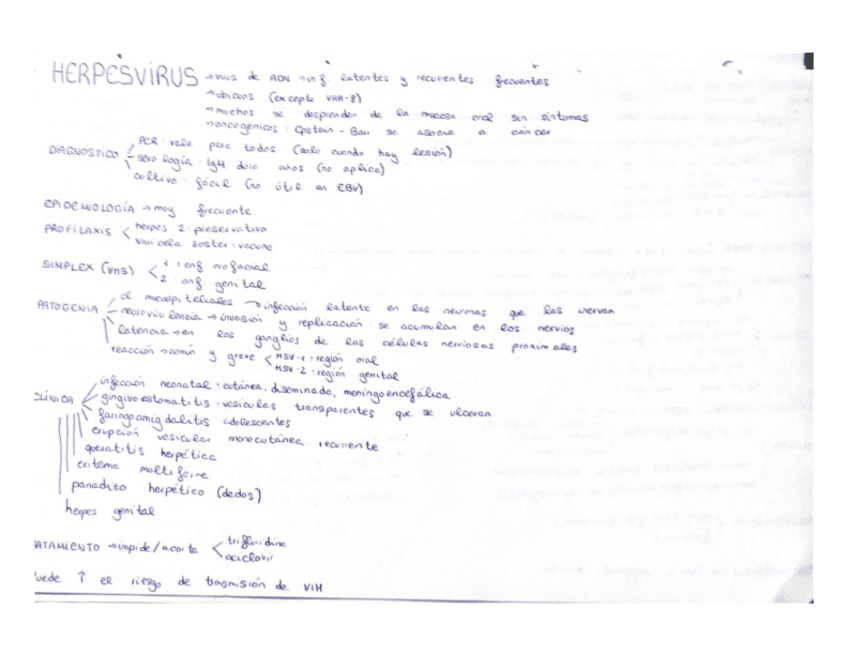 HERPESVIRUS → virus de ADN → inf. latentes y recurrentes frecuentes
→ ubicuos (excepto VHH-8)
→ muchos se desprenden de la mucosa oral sin síntomas
→ oncogénicos: Epstein-Barr se asocia a cáncer
DIAGNOSTICO
PCR: vale para todos (solo cuando hay lesión)
serología: IgM dura años (no aplica)
cultivo: fácil (no útil en EBV)
EPIDEMIOLOGÍA → muy frecuente
PROFILAXIS
herpes 2: preservativo
varicela zoster: vacuna
SIMPLEX (VHS)
1: enf orofacial
2: enf genital
PATOGENIA
cl mucoepiteliales → infección latente en las neuronas que las inervan
neurovirulencia → invasión y replicación: se acumulan en los nervios
latencia → en los ganglios de las células nerviosas proximales
reacción → común y grave
HSV-1: región oral
HSV-2: región genital
CLÍNICA
infección neonatal: cutánea, diseminada, meningoencefálica
gingivoestomatitis: vesículas transparentes que se ulceran
faringoamigdalitis adolescentes
erupción vesicular monocutánea recurrente
queratitis herpética
eritema multiforme
panadizo herpético (dedos)
herpes genital
ATAMIENTO → impide/acorta
trifluridina
aciclovir
uede ↑ el riesgo de transmisión de VIH